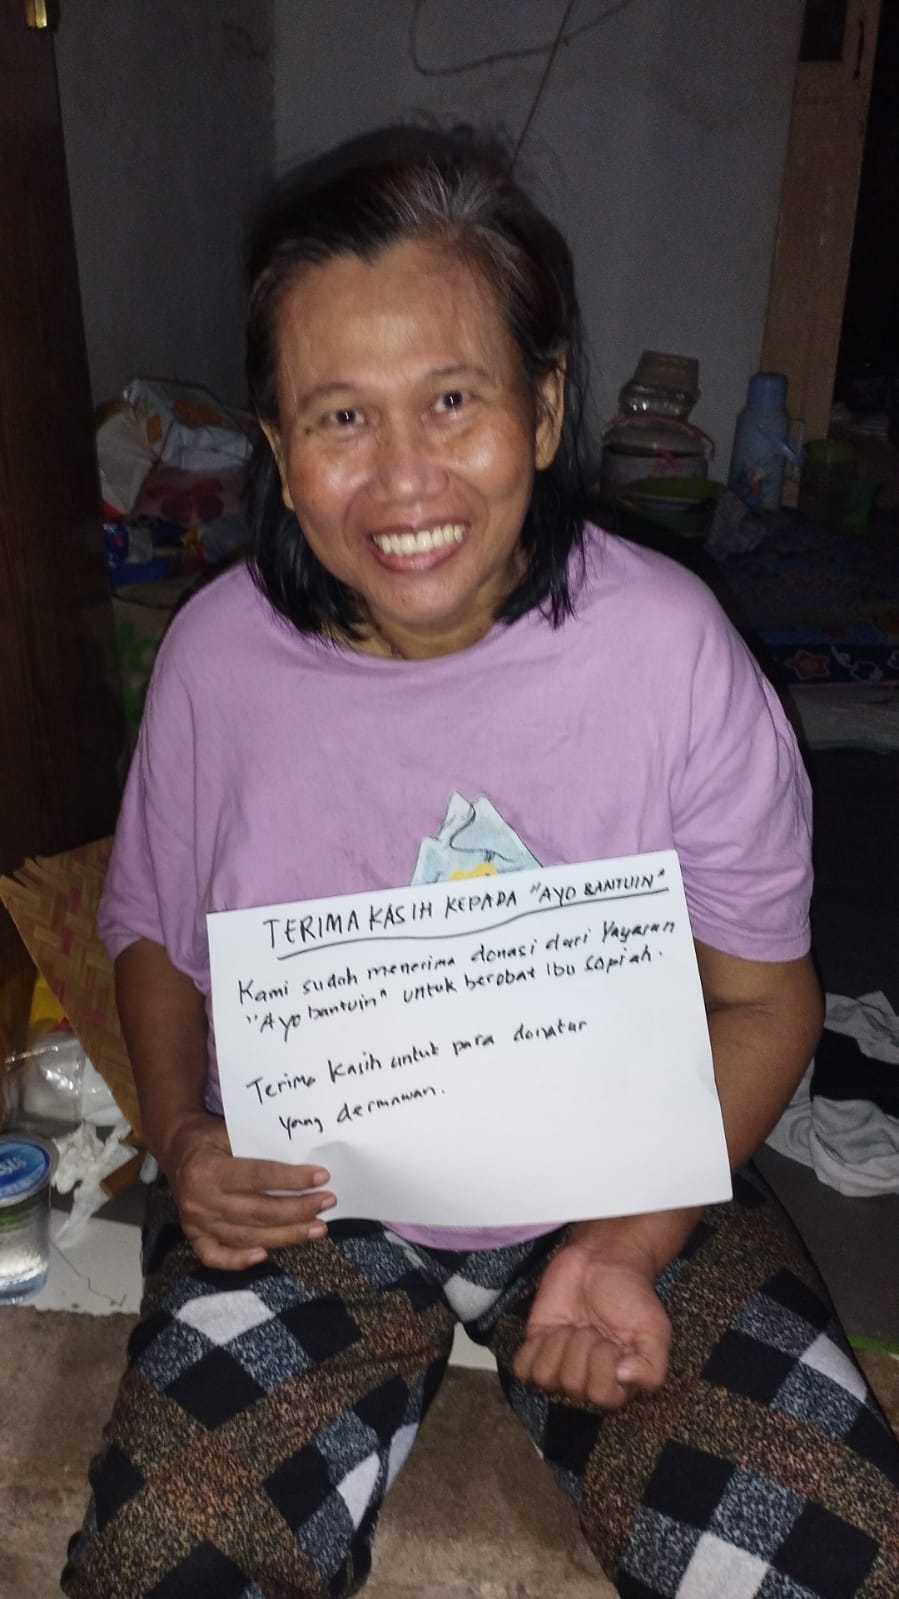 TERIMA KASIH KEPADA "AYO BANTUIN"
Kami sudah menerima donasi dari Yayasan
"Ayo bantuin" untuk berobat Ibu Sopiah.
Terima Kasih untuk para donatur
yang dermawan.